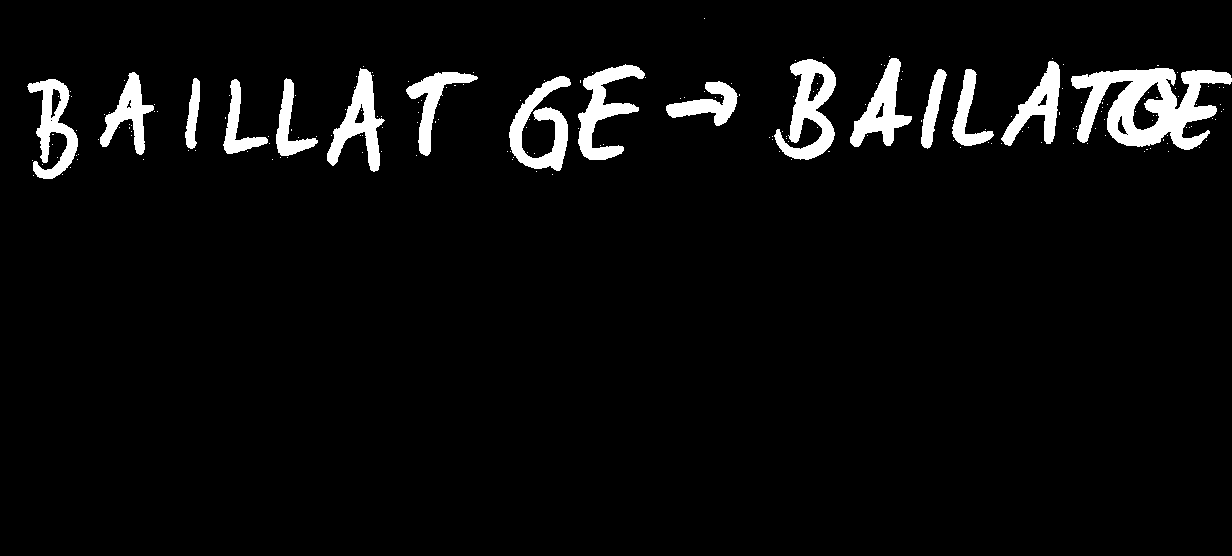 BAILLAT GE → BAILATGE